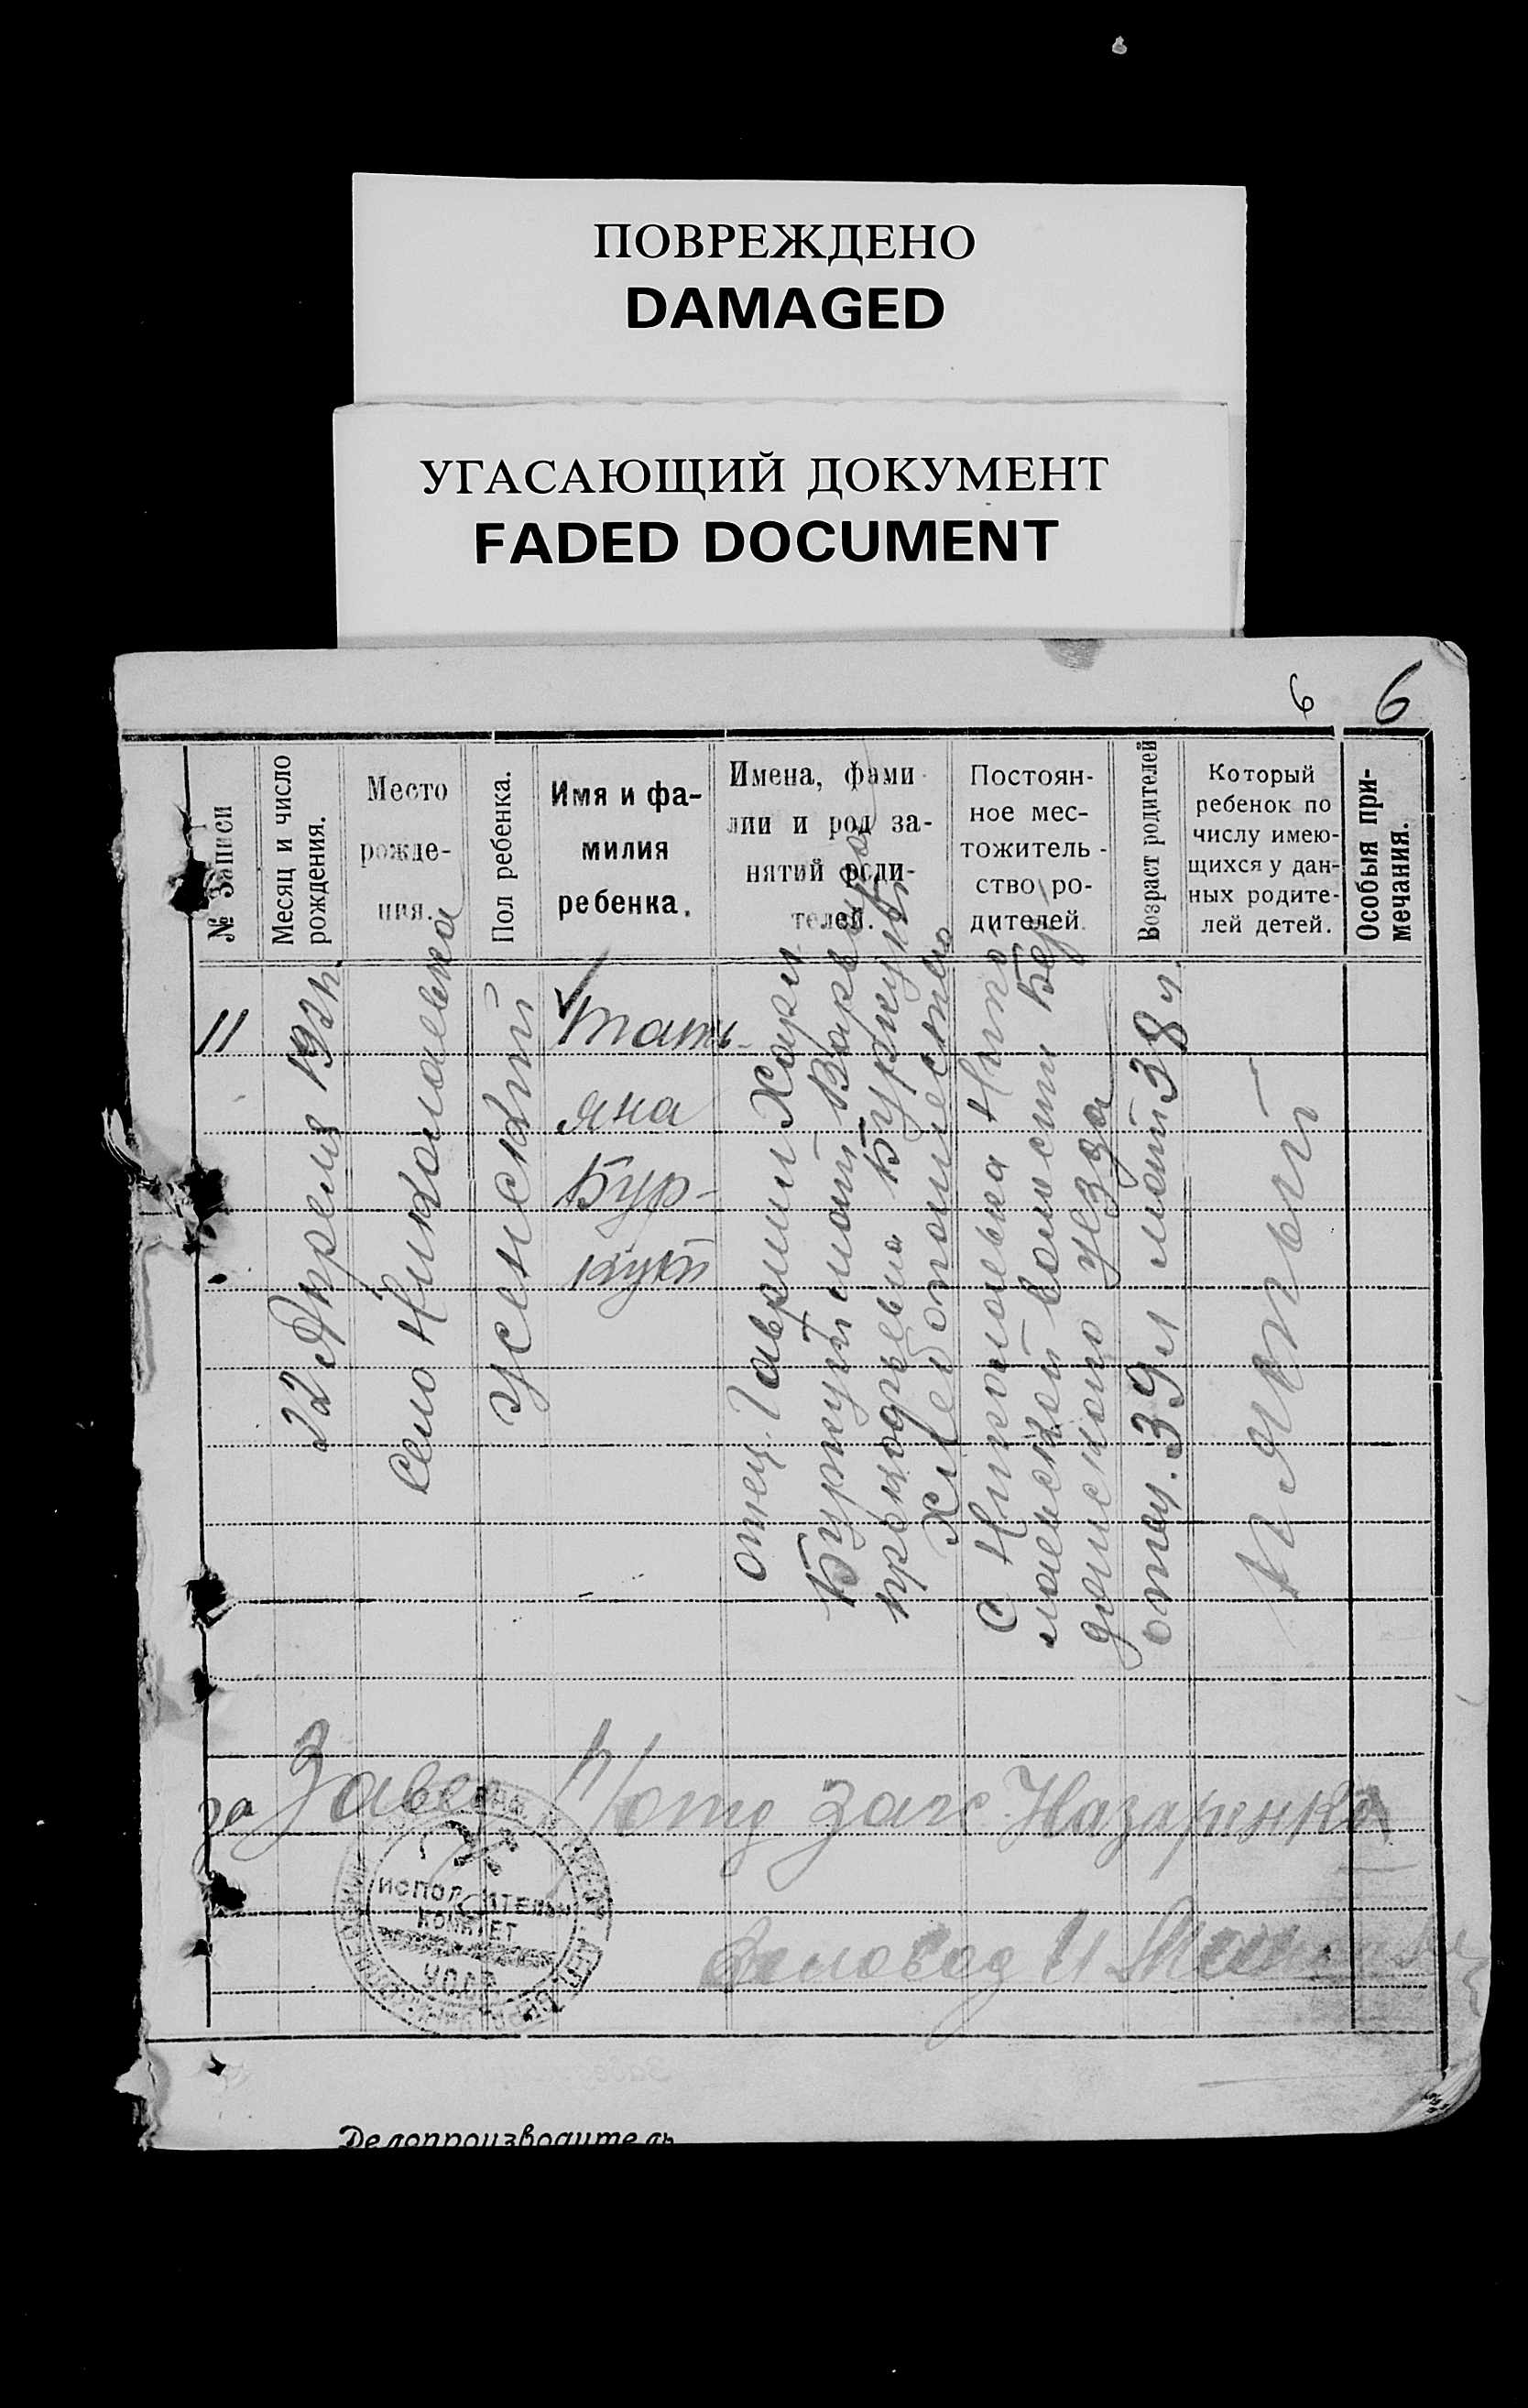 ПОВРЕЖДЕНО
DAMAGED
УГАСАЮЩИЙ ДОКУМЕНТ
FADED DOCUMENT
6 6
№ Записи
Месяц и число
рождения.
Место
рожде-
ния.
Пол ребенка.
Имя и фа-
милия
ребенка.
Имена, фами
лии и род за-
нятий роди-
телей.
Постоян-
ное мес-
тожитель-
ство ро-
дителей
Возраст родителей
Который
ребенок по
числу имею-
щихся у дан-
ных родите-
лей детей.
Особыя при-
мечания.
11
22 Апреля 192
Село Николаевка
Женский
Тать-
яна
Бур-
кут
отец. Гавриил Хари
Буркут мать Варвара
прокофьевна Буркут
Хлебопашество
С Николаевка Нико
лаевской волости Бер
дянского уезда
отец. 39 л мать 38 л.
пятый
за Завед п/отд Загс Назаренко
Деловод И
ИСПОЛНИТЕЛЬН
КОМИТЕТ
Делопроизводитель